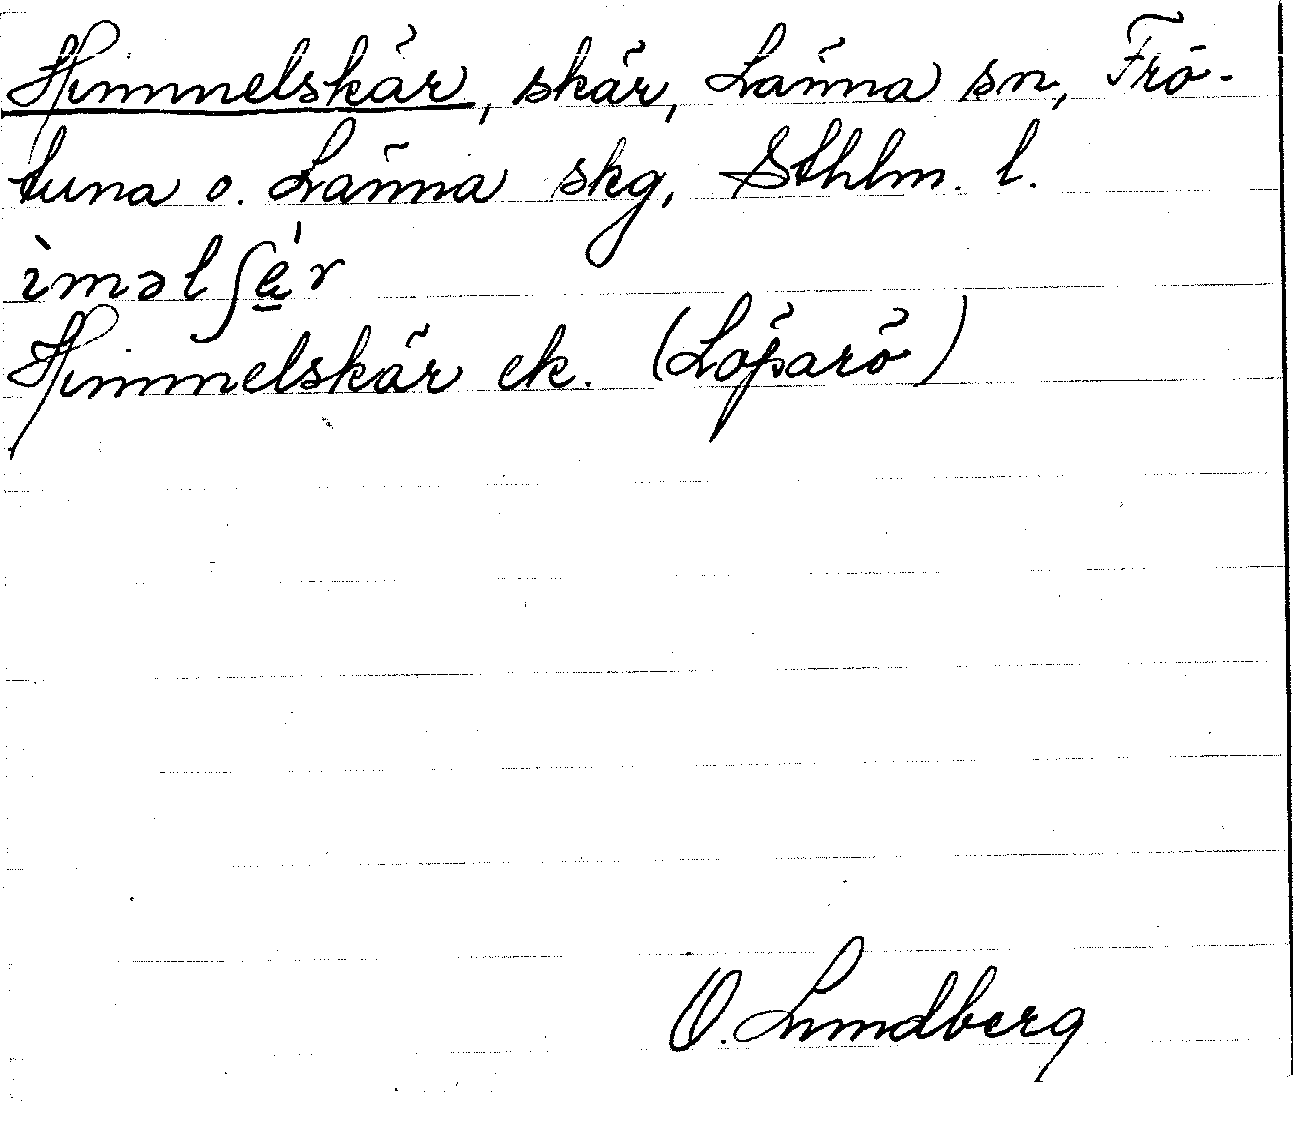 Himmelskär, skär, Länna sn, Frö-
tuna o. Länna skg, Sthlm. l.
ìməlʃä̀r
Himmelskär ek. (Löparö)
O. Lundberg